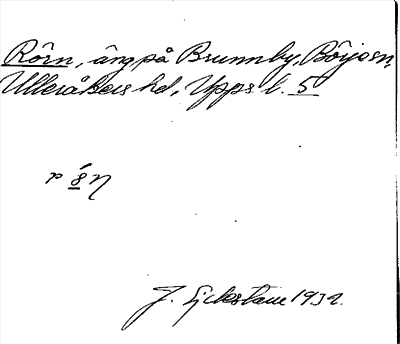 Rörn, äng på Brunnby, Börje sn,
Ulleråkers hd, Upps l. 5
J. Eyckstam 1932.